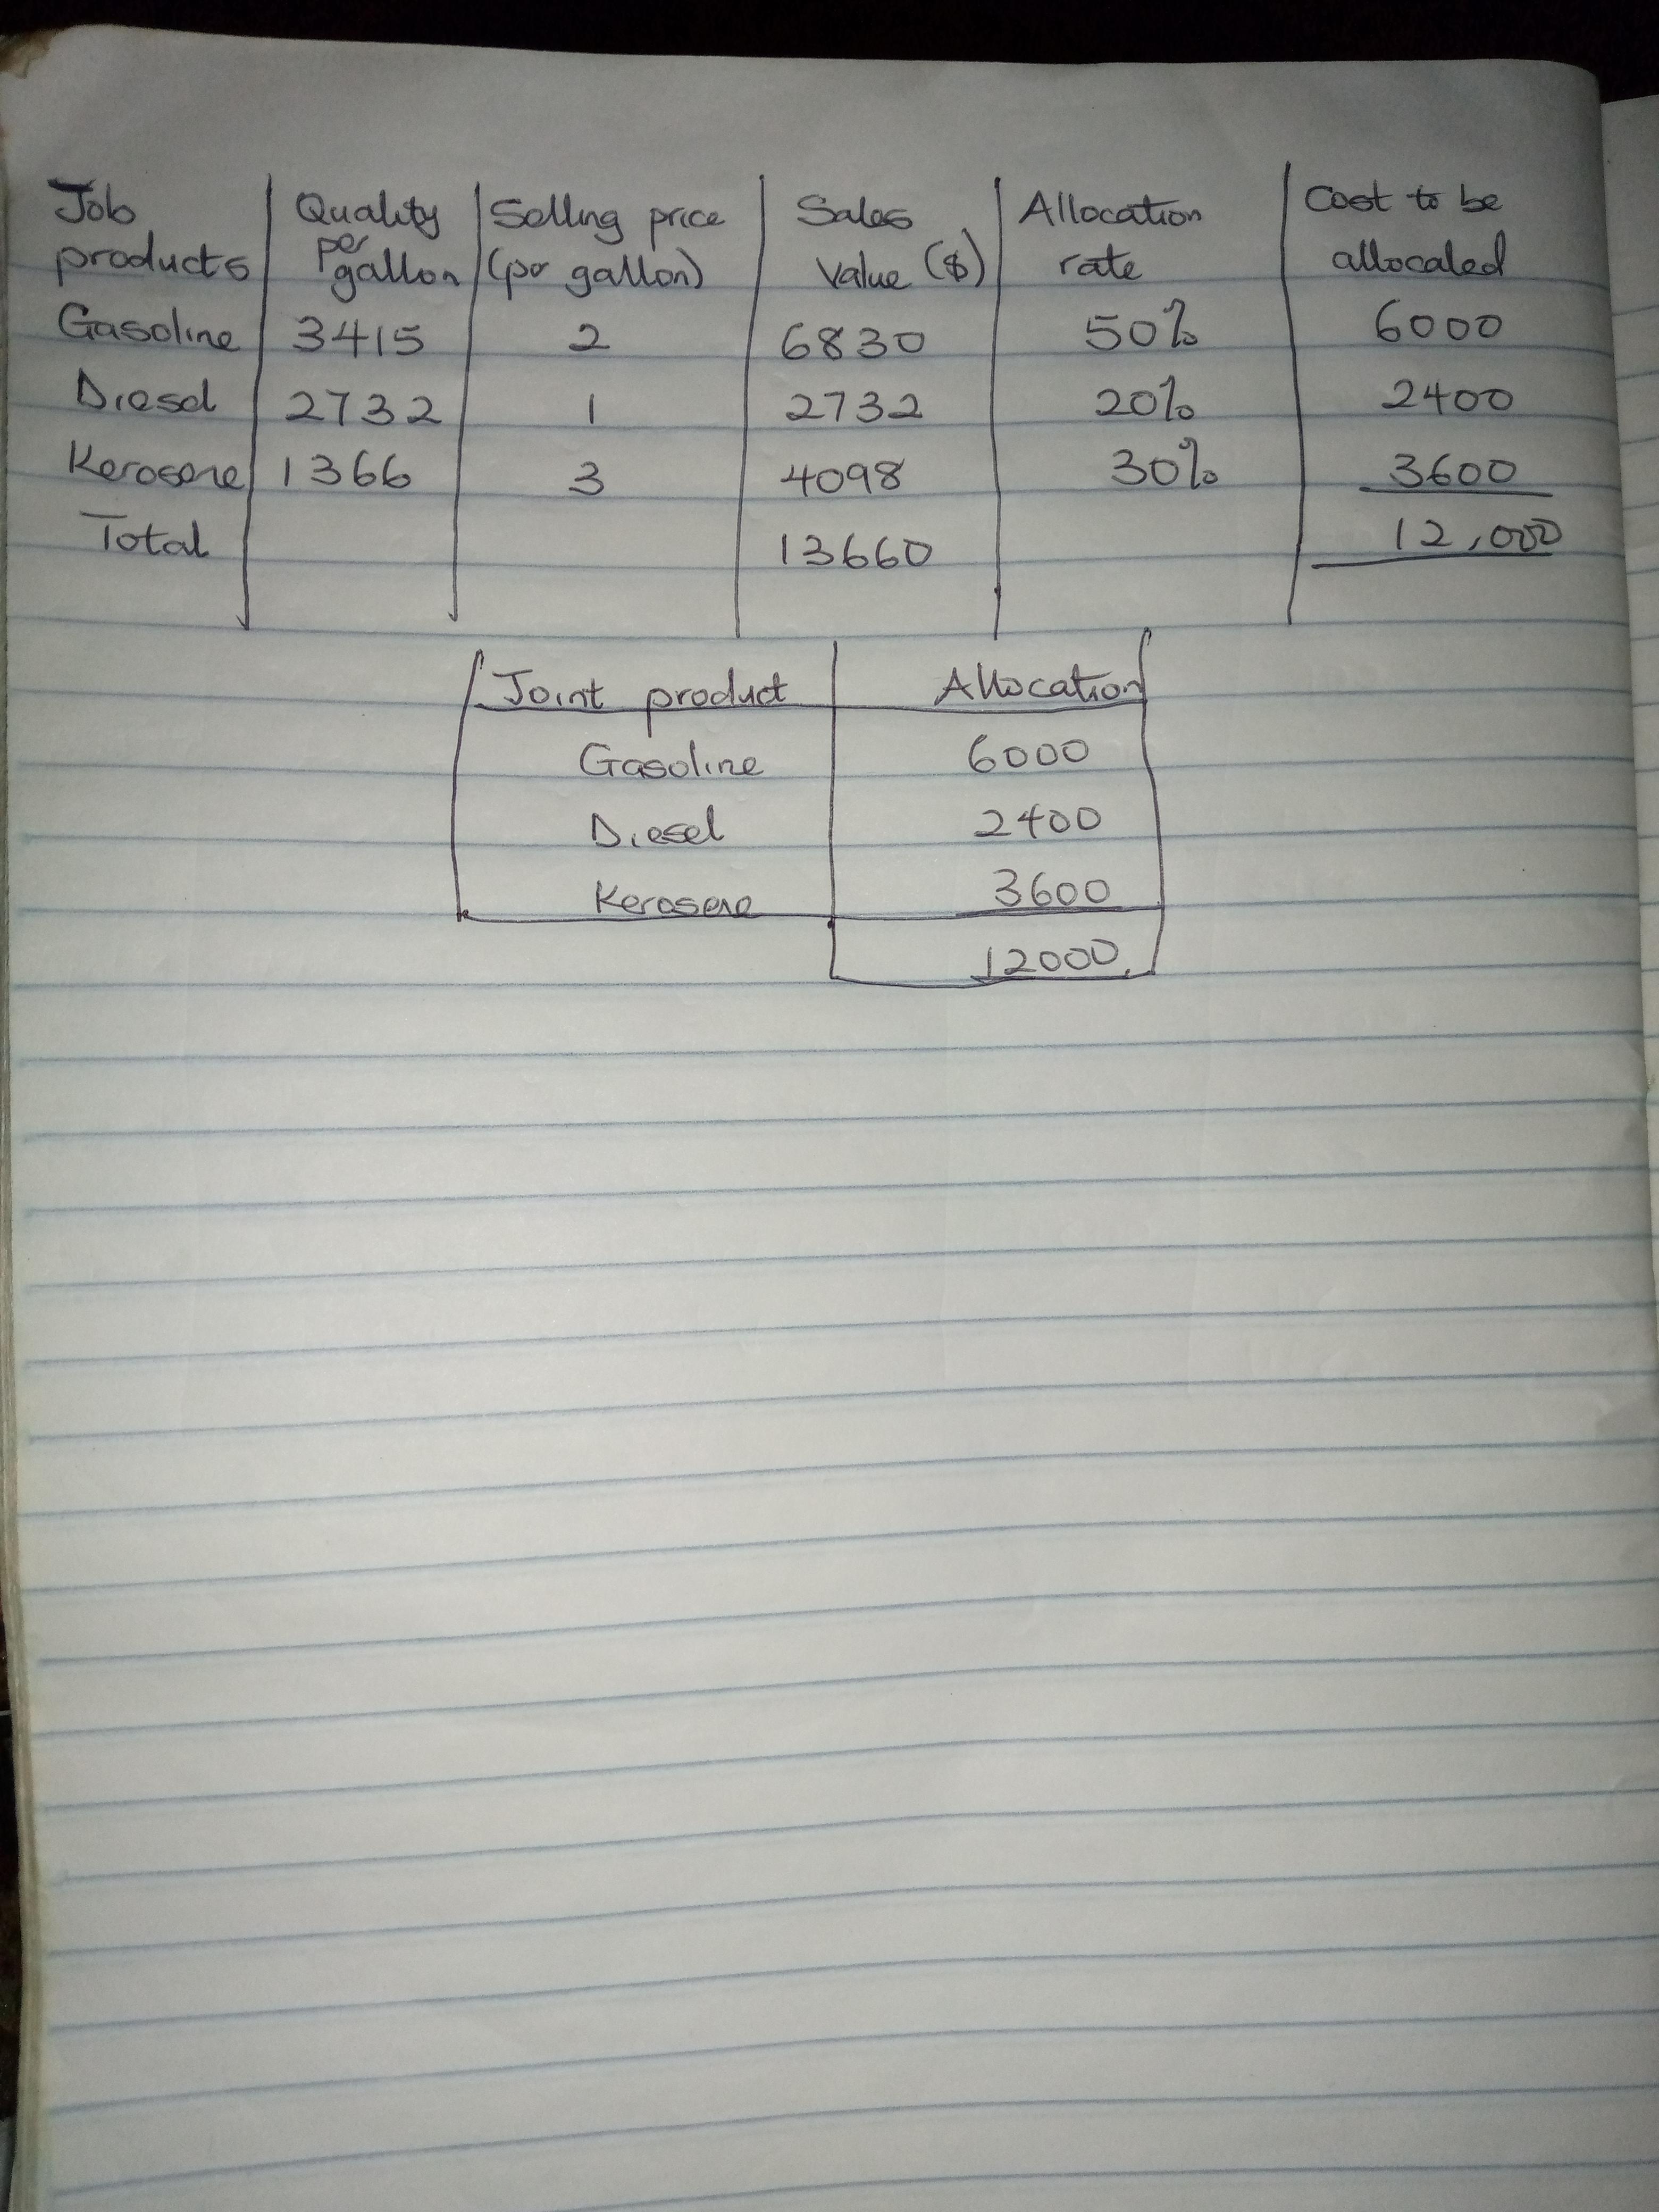 Job | Quality | Selling price | Sales | Allocation | Cost to be
products | per gallon | (per gallon) | Value ($) | rate | allocated
Gasoline | 3415 | 2 | 6830 | 50% | 6000
Diesel | 2732 | 1 | 2732 | 20% | 2400
Kerosene | 1366 | 3 | 4098 | 30% | 3600
Total | 13660 | 12,000
Joint product | Allocation
Gasoline | 6000
Diesel | 2400
Kerosene | 3600
12000